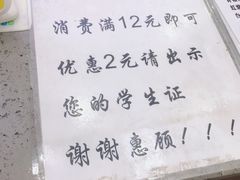 消费满12元即可
优惠2元请出示
您的学生证
谢谢惠顾！！！